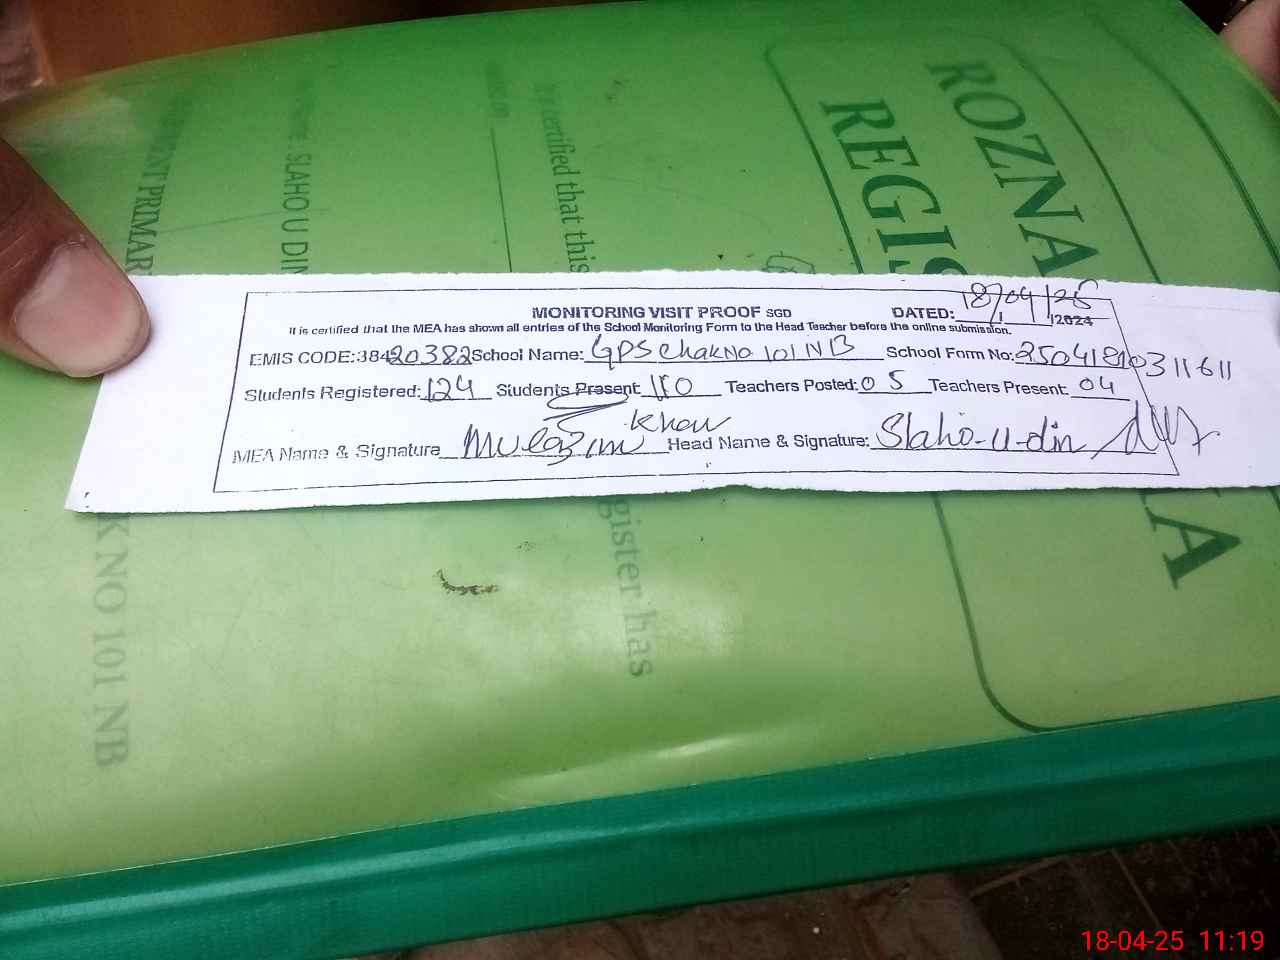 ROZNA
REGIS
ertified that this
SLAHO U DIN
PRIMAR
MONITORING VISIT PROOF SGD
DATED: 18/04/25 /2024
It is certified that the MEA has shown all entries of the School Monitoring Form to the Head Teacher before the online submission.
EMIS CODE:38420382 School Name: GPS Chak No 101 NB School Form No: 250418103 11611
Students Registered: 124 Students Present 110 Teachers Posted: 05 Teachers Present: 04
MEA Name & Signature Mulazim Khan Head Name & Signature: Slaho-u-din
gister has
K NO 101 NB
A
18-04-25 11:19